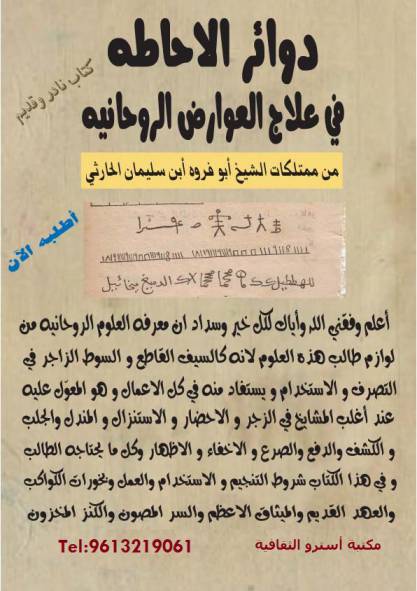 دوائر الاحاطه
كتاب نادر وقديم
في علاج العوارض الروحانيه
من ممتلكات الشيخ أبو فروه أبن سليمان الحارثي
أطلبه الآن
أعلم وفقني الله وأياك لكل خير وسداد ان معرفه العلوم الروحانيه من
لوازم طالب هذه العلوم لانه كالسيف القاطع و السوط الزاجر في
التصرف و الاستخدام و يستفاد منه في كل الاعمال و هو المعوّل عليه
عند أغلب المشايخ في الزجر و الاحضار و الاستنزال و المندل والجلب
و الكشف والدفع والصرع و الاخفاء و الاظهار وكل ما يحتاجه الطالب
و في هذا الكتاب شروط التنجيم و الاستخدام والعمل وبخورات الكواكب
والعهد القديم والميثاق الاعظم والسر المصون والكنز المخزون
Tel:9613219061 مكتبة أسترو الثقافية